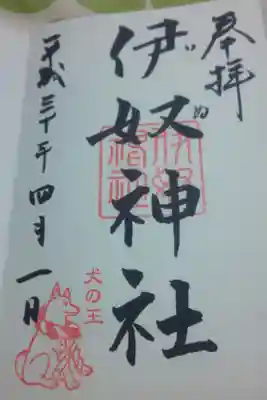 奉拝
いぬ
伊奴神社
犬の王
平成三十年四月一日